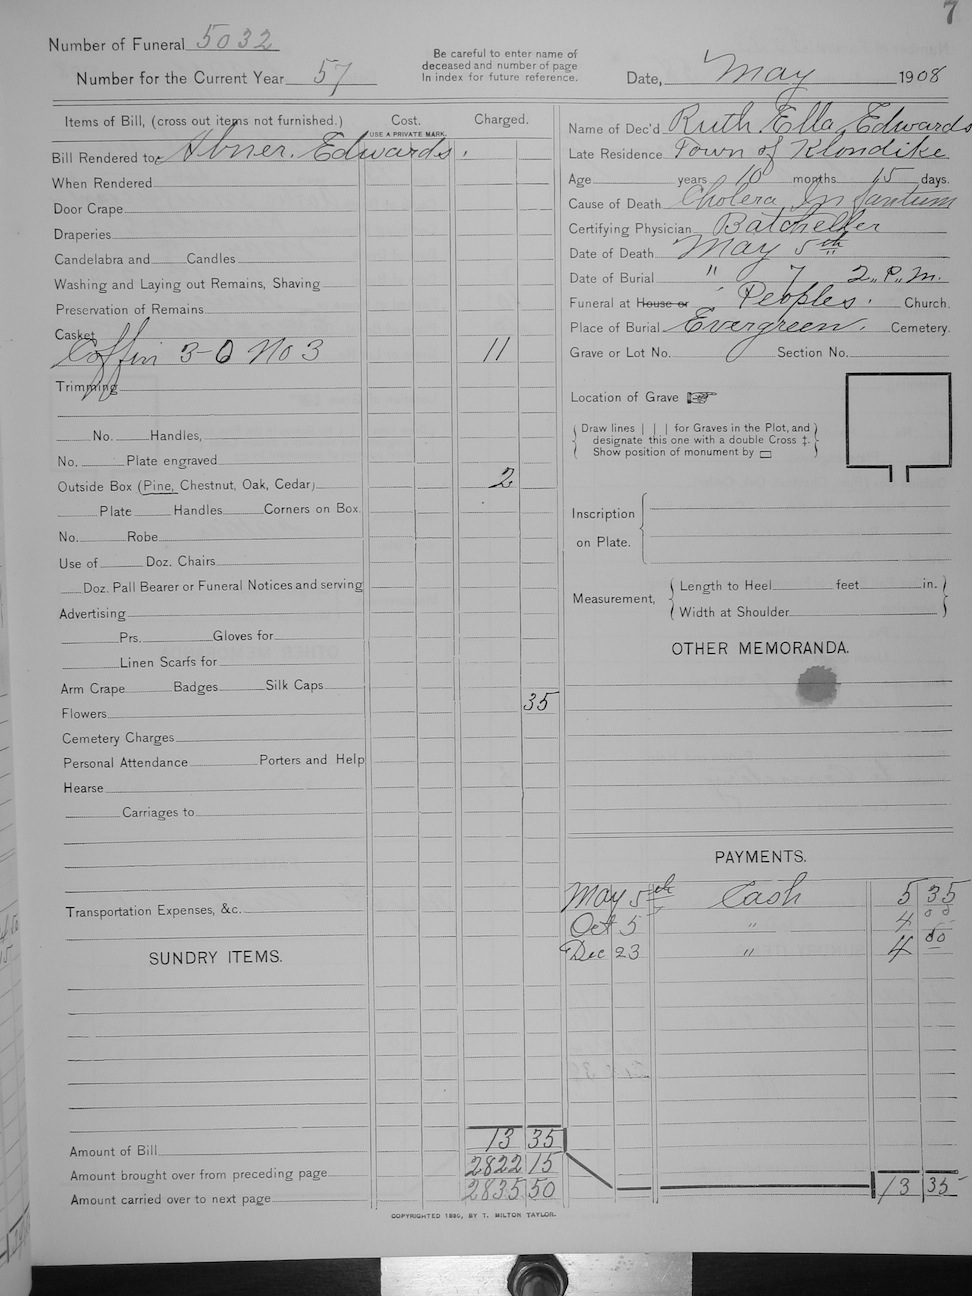 7
Number of Funeral 5032
Number for the Current Year 57
Be careful to enter name of
deceased and number of page
In index for future reference.
Date, May 1908
Items of Bill, (cross out items not furnished.) Cost. Charged.
USE A PRIVATE MARK.
Bill Rendered to Abner Edwards.
When Rendered
Door Crape
Draperies
Candelabra and Candles
Washing and Laying out Remains, Shaving
Preservation of Remains
Casket
Coffin 3-0 No 3 11
Trimming
No. Handles,
No. Plate engraved
Outside Box (Pine, Chestnut, Oak, Cedar) 2
Plate Handles Corners on Box
No. Robe
Use of Doz. Chairs
Doz. Pall Bearer or Funeral Notices and serving
Advertising
Prs. Gloves for
Linen Scarfs for
Arm Crape Badges Silk Caps
Flowers 35
Cemetery Charges
Personal Attendance Porters and Help
Hearse
Carriages to
Transportation Expenses, &c.
SUNDRY ITEMS.
Amount of Bill 13 35
Amount brought over from preceding page 2822 15
Amount carried over to next page 2835 50
Name of Dec'd Ruth Ella Edwards
Late Residence Town of Klondike
Age years 10 months 15 days.
Cause of Death Cholera Infantum
Certifying Physician Batcheller
Date of Death May 5th
Date of Burial " 7 2 P.M.
Funeral at House or Peoples. Church.
Place of Burial Evergreen. Cemetery.
Grave or Lot No. Section No.
Location of Grave
Draw lines | | | for Graves in the Plot, and
designate this one with a double Cross ‡.
Show position of monument by
Inscription
on Plate.
Measurement, Length to Heel feet in.
Width at Shoulder
OTHER MEMORANDA.
PAYMENTS.
May 5th Cash 5 35
Oct 5 " 4 00
Dec 23 " 4 00
13 35
COPYRIGHTED 1890, BY T. MILTON TAYLOR.